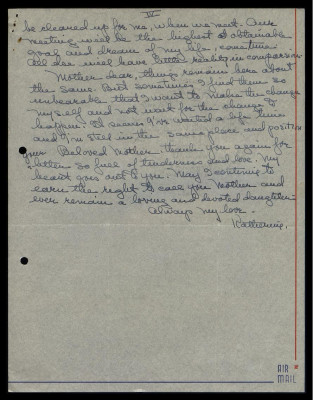 IV
be cleared up for me, when we meet. Our
meeting will be the highest obtainable
goal and dream of my life, sometime.
All else will have little reality in comparison
Mother dear, things remain here about
the same. But sometimes I find them so
unbearable that I want to make the change
myself and not wait for the change to
happen. It seems I've waited a life time
and I'm still in the same place and position
Beloved Mother, thank you again for
letter so full of tenderness and love. My
heart goes out to you. May I continue to
earn the right to call you Mother and
ever remain a loving and devoted daughter.
Always my love.
Katherine.
AIR
MAIL